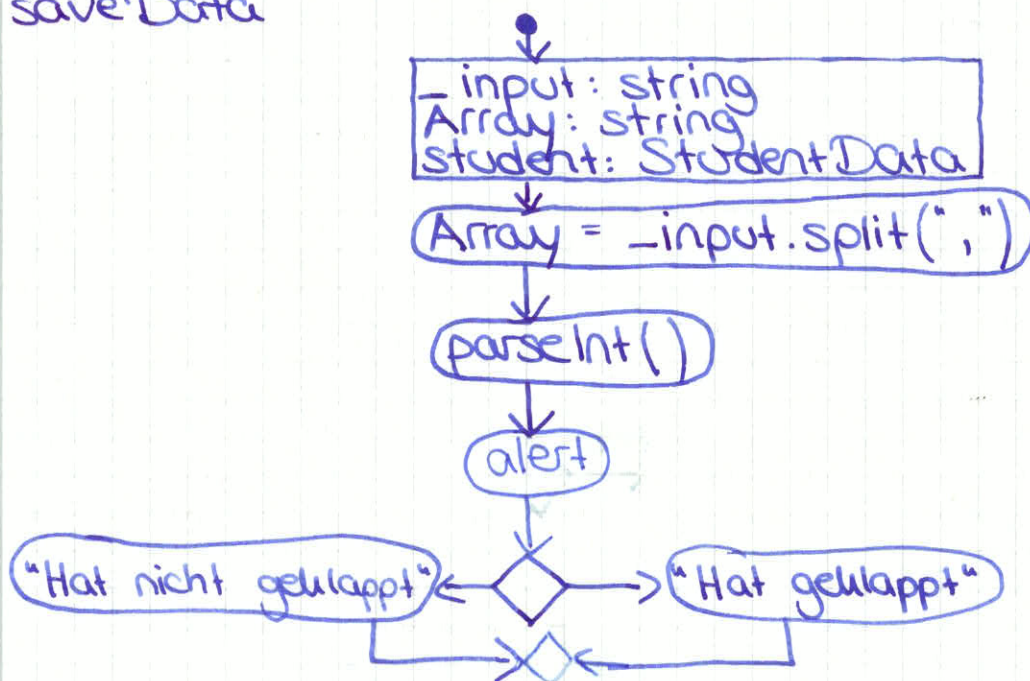 saveData
_input: string
Array: string
student: StudentData
Array = _input.split(",")
parseInt()
alert
"Hat nicht geklappt"
"Hat geklappt"